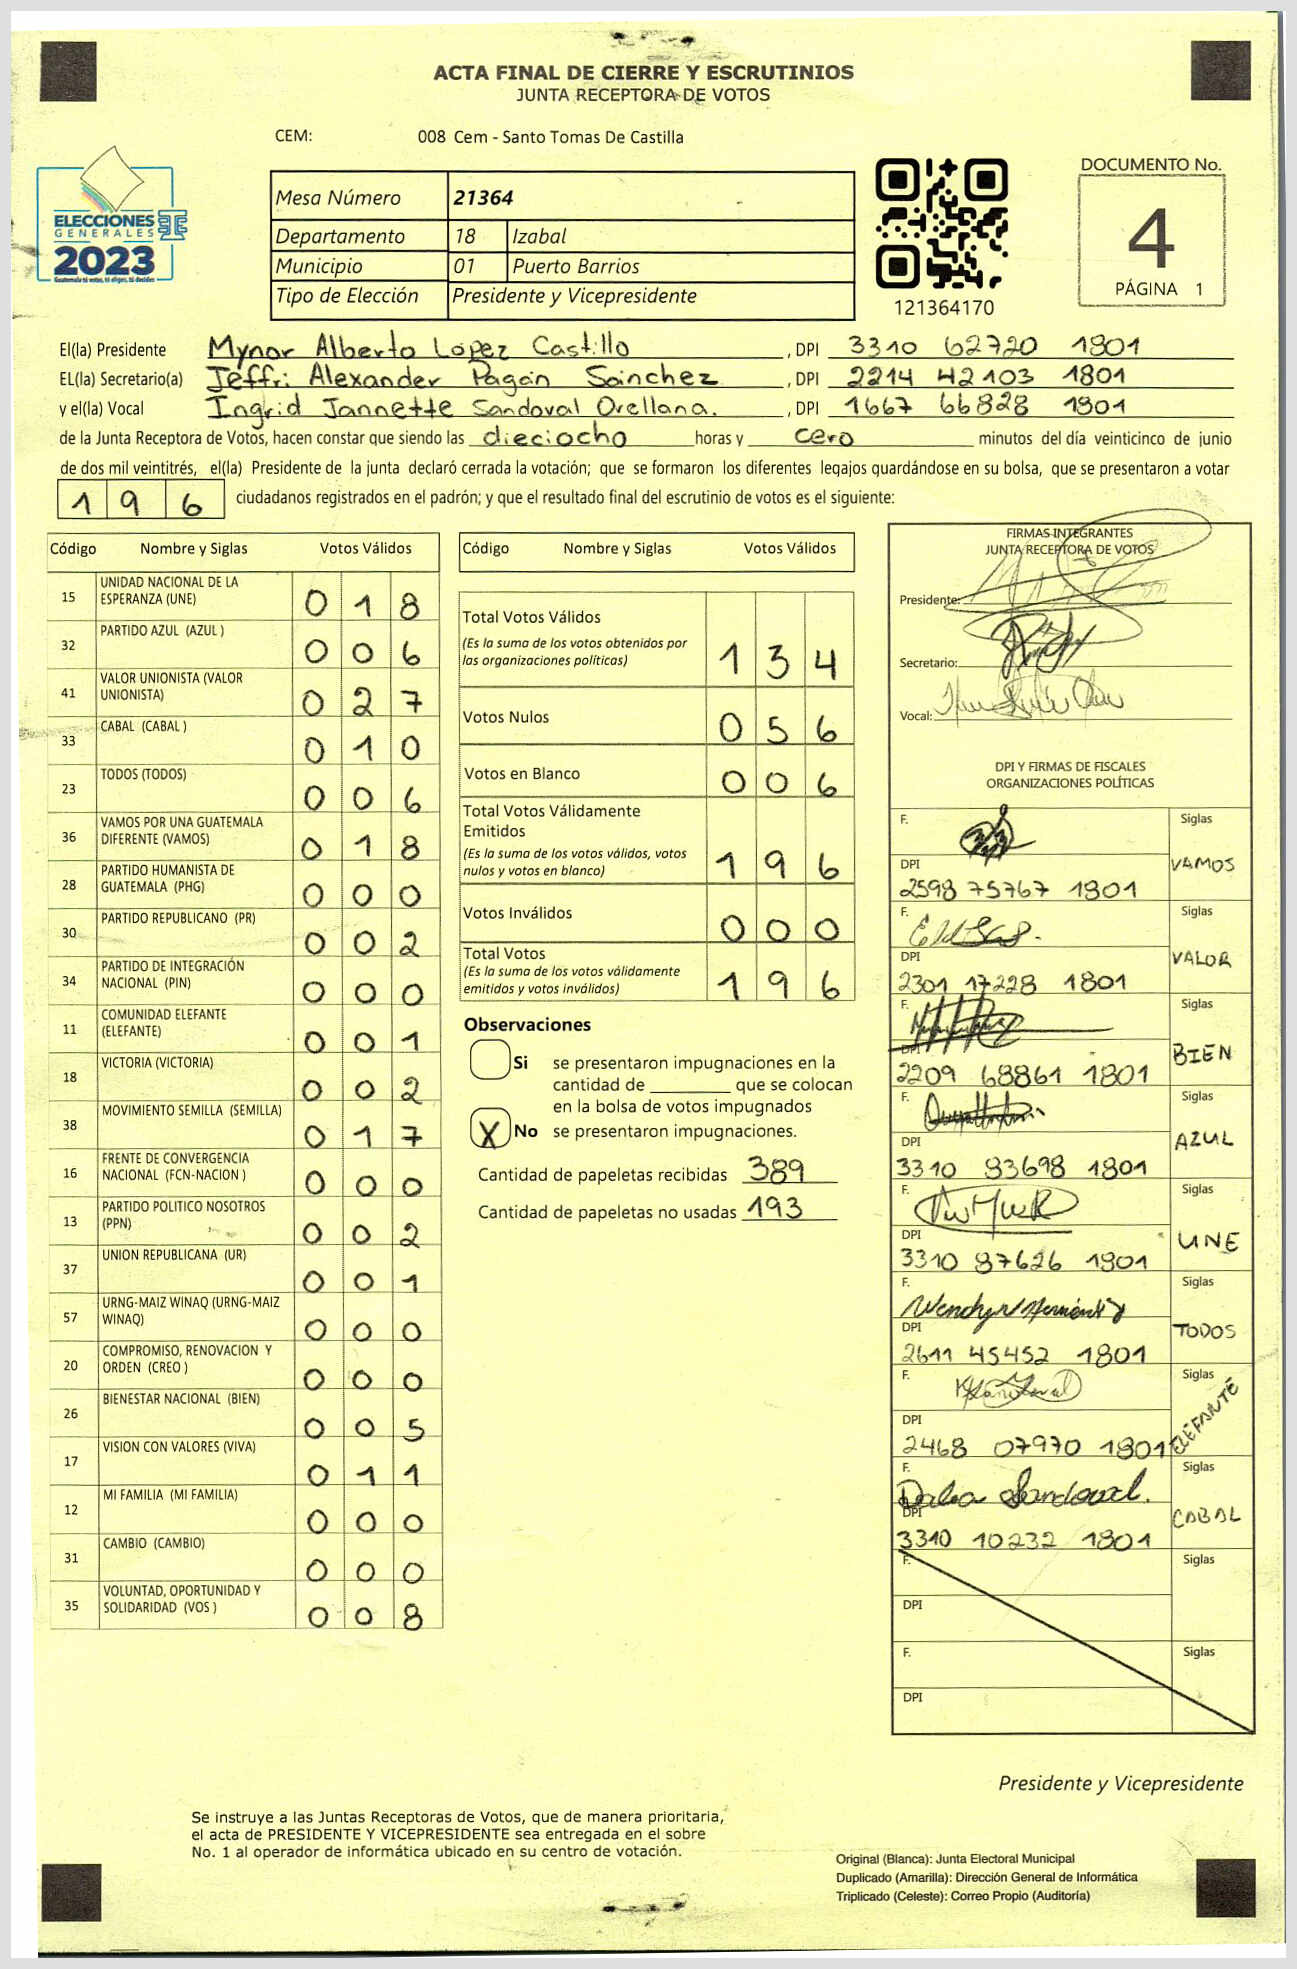 ACTA FINAL DE CIERRE Y ESCRUTINIOS
JUNTA RECEPTORA DE VOTOS
CEM: 008 Cem - Santo Tomas De Castilla
ELECCIONES
GENERALES
2023
Guatemala tú votas, tú eliges, tú decides
Mesa Número 21364
Departamento 18 Izabal
Municipio 01 Puerto Barrios
Tipo de Elección Presidente y Vicepresidente
121364170
DOCUMENTO No.
4
PÁGINA 1
El(la) Presidente Mynor Alberto López Castillo, DPI 3310 62720 1801
EL(la) Secretario(a) Jeffri Alexander Pagán Sánchez, DPI 2214 42103 1801
y el(la) Vocal Ingrid Jannette Sandoval Orellana., DPI 1667 66828 1801
de la Junta Receptora de Votos, hacen constar que siendo las dieciocho horas y cero minutos del día veinticinco de junio
de dos mil veintitrés, el(la) Presidente de la junta declaró cerrada la votación; que se formaron los diferentes legajos guardándose en su bolsa, que se presentaron a votar
196 ciudadanos registrados en el padrón; y que el resultado final del escrutinio de votos es el siguiente:
Código Nombre y Siglas Votos Válidos
15 UNIDAD NACIONAL DE LA ESPERANZA (UNE) 018
32 PARTIDO AZUL (AZUL ) 006
41 VALOR UNIONISTA (VALOR UNIONISTA) 027
33 CABAL (CABAL ) 010
23 TODOS (TODOS) 006
36 VAMOS POR UNA GUATEMALA DIFERENTE (VAMOS) 018
28 PARTIDO HUMANISTA DE GUATEMALA (PHG) 000
30 PARTIDO REPUBLICANO (PR) 002
34 PARTIDO DE INTEGRACIÓN NACIONAL (PIN) 000
11 COMUNIDAD ELEFANTE (ELEFANTE) 001
18 VICTORIA (VICTORIA) 002
38 MOVIMIENTO SEMILLA (SEMILLA) 017
16 FRENTE DE CONVERGENCIA NACIONAL (FCN-NACION ) 000
13 PARTIDO POLITICO NOSOTROS (PPN) 002
37 UNION REPUBLICANA (UR) 001
57 URNG-MAIZ WINAQ (URNG-MAIZ WINAQ) 000
20 COMPROMISO, RENOVACION Y ORDEN (CREO ) 000
26 BIENESTAR NACIONAL (BIEN) 005
17 VISION CON VALORES (VIVA) 011
12 MI FAMILIA (MI FAMILIA) 000
31 CAMBIO (CAMBIO) 000
35 VOLUNTAD, OPORTUNIDAD Y SOLIDARIDAD (VOS ) 008
Código Nombre y Siglas Votos Válidos
Total Votos Válidos
(Es la suma de los votos obtenidos por
las organizaciones políticas) 134
Votos Nulos 056
Votos en Blanco 006
Total Votos Válidamente
Emitidos
(Es la suma de los votos válidos, votos
nulos y votos en blanco) 196
Votos Inválidos 000
Total Votos
(Es la suma de los votos válidamente
emitidos y votos inválidos) 196
Observaciones
Si se presentaron impugnaciones en la
cantidad de ________ que se colocan
en la bolsa de votos impugnados
X No se presentaron impugnaciones.
Cantidad de papeletas recibidas 389
Cantidad de papeletas no usadas 193
FIRMAS INTEGRANTES
JUNTA RECEPTORA DE VOTOS
Presidente:
Secretario:
Vocal:
DPI Y FIRMAS DE FISCALES
ORGANIZACIONES POLÍTICAS
F. Siglas
DPI VAMOS
2598 75767 1801
F. Siglas
DPI VALOR
2301 17228 1801
F. Siglas
DPI BIEN
2209 68861 1801
F. Siglas
DPI AZUL
3310 83698 1801
F. Siglas
DPI UNE
3310 87626 1801
F. Siglas
DPI TODOS
2611 45452 1801
F. Sandoval Siglas
DPI ELEFANTE
2468 07970 1801
F. Dalia Sandoval. Siglas
DPI CABAL
3310 10232 1801
F. Siglas
DPI
F. Siglas
DPI
Presidente y Vicepresidente
Se instruye a las Juntas Receptoras de Votos, que de manera prioritaria,
el acta de PRESIDENTE Y VICEPRESIDENTE sea entregada en el sobre
No. 1 al operador de informática ubicado en su centro de votación.
Original (Blanca): Junta Electoral Municipal
Duplicado (Amarilla): Dirección General de Informática
Triplicado (Celeste): Correo Propio (Auditoría)